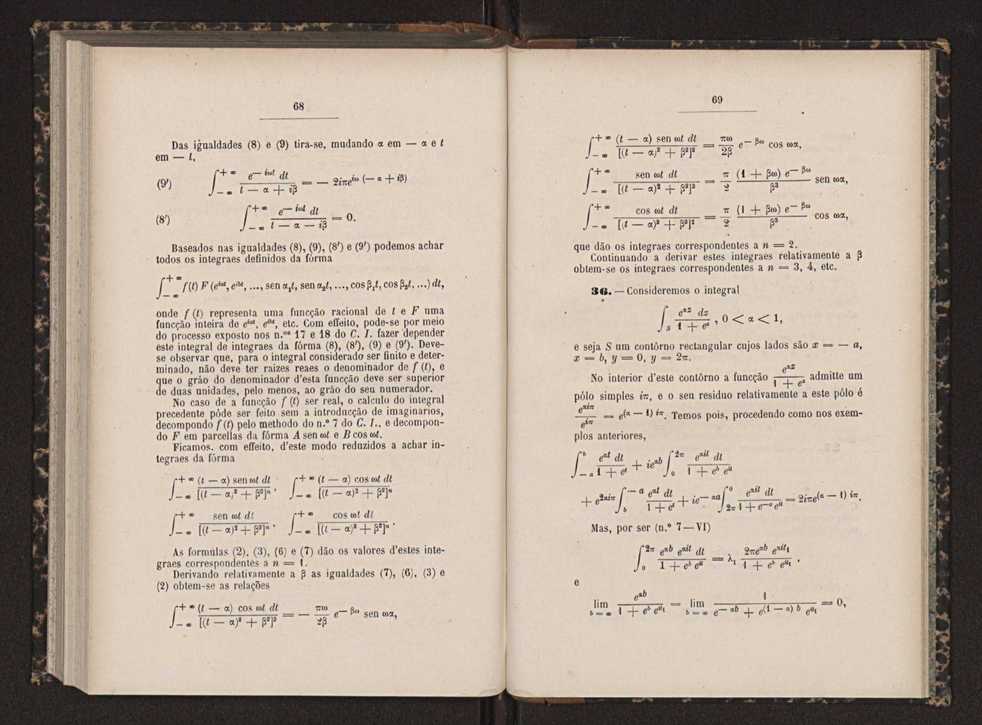 68
Das igualdades (8) e (9) tira-se, mudando α em — α e t
em — t,
(9′) ∫_{— ∞}^{+ ∞} e^{— iωt} dt / (t — α + iβ) = — 2iπe^{iω (— α + iβ)}
(8′) ∫_{— ∞}^{+ ∞} e^{— iωt} dt / (t — α — iβ) = 0.
Baseados nas igualdades (8), (9), (8′) e (9′) podemos achar
todos os integraes definidos da fórma
∫_{— ∞}^{+ ∞} f(t) F (e^{iαt}, e^{iβt}, ..., sen α₁t, sen α₂t, ..., cos β₁t, cos β₂t, ...) dt,
onde f (t) representa uma funcção racional de t e F uma
funcção inteira de e^{iαt}, e^{iβt}, etc. Com effeito, pode-se por meio
do processo exposto nos n.os 17 e 18 do C. I. fazer depender
este integral de integraes da fórma (8), (8′), (9) e (9′). Deve-
se observar que, para o integral considerado ser finito e deter-
minado, não deve ter raizes reaes o denominador de f (t), e
que o gráo do denominador d'esta funcção deve ser superior
de duas unidades, pelo menos, ao gráo do seu numerador.
No caso de a funcção f (t) ser real, o calculo do integral
precedente póde ser feito sem a introducção de imaginarios,
decompondo f (t) pelo methodo do n.º 7 do C. I., e decompon-
do F em parcellas da fórma A sen ωt e B cos ωt.
Ficamos, com effeito, d'este modo reduzidos a achar in-
tegraes da fórma
∫_{— ∞}^{+ ∞} (t — α) sen ωt dt / [(t — α)² + β²]ⁿ, ∫_{— ∞}^{+ ∞} (t — α) cos ωt dt / [(t — α)² + β²]ⁿ
∫_{— ∞}^{+ ∞} sen ωt dt / [(t — α)² + β²]ⁿ, ∫_{— ∞}^{+ ∞} cos ωt dt / [(t — α)² + β²]ⁿ.
As formulas (2), (3), (6) e (7) dão os valores d'estes inte-
graes correspondentes a n = 1.
Derivando relativamente a β as igualdades (7), (6), (3) e
(2) obtem-se as relações
∫_{— ∞}^{+ ∞} (t — α) cos ωt dt / [(t — α)² + β²]² = — πω / 2β e^{— βω} sen ωα,
69
∫_{— ∞}^{+ ∞} (t — α) sen ωt dt / [(t — α)² + β²]² = πω / 2β e^{— βω} cos ωα,
∫_{— ∞}^{+ ∞} sen ωt dt / [(t — α)² + β²]² = π / 2 (1 + βω) e^{— βω} / β³ sen ωα,
∫_{— ∞}^{+ ∞} cos ωt dt / [(t — α)² + β²]² = π / 2 (1 + βω) e^{— βω} / β³ cos ωα,
que dão os integraes correspondentes a n = 2.
Continuando a derivar estes integraes relativamente a β
obtem-se os integraes correspondentes a n = 3, 4, etc.
36. — Consideremos o integral
∫_S e^{αz} dz / (1 + e^z), 0 < α < 1,
e seja S um contôrno rectangular cujos lados são x = — a,
x = b, y = 0, y = 2π.
No interior d'este contôrno a funcção e^{αz} / (1 + e^z) admitte um
pólo simples iπ, e o seu residuo relativamente a este pólo é
e^{αiπ} / e^{iπ} = e^{(α — 1) iπ}. Temos pois, procedendo como nos exem-
plos anteriores,
∫_{— a}^{b} e^{αt} dt / (1 + e^t) + ie^{αb} ∫_0^{2π} e^{αit} dt / (1 + e^b e^{it})
+ e^{2αiπ} ∫_b^{— a} e^{αt} dt / (1 + e^t) + ie^{— aα} ∫_{2π}^0 e^{αit} dt / (1 + e^{—a} e^{it}) = 2iπe^{(α — 1) iπ}.
Mas, por ser (n.º 7 — VI)
∫_0^{2π} e^{αb} e^{αit} dt / (1 + e^b e^{it}) = λ₁ 2πe^{αb} e^{αit₁} / (1 + e^b e^{it₁}),
e
lim_{b = ∞} e^{αb} / (1 + e^b e^{it₁}) = lim_{b = ∞} 1 / (e^{— αb} + e^{(1 — α) b} e^{it₁}) = 0,